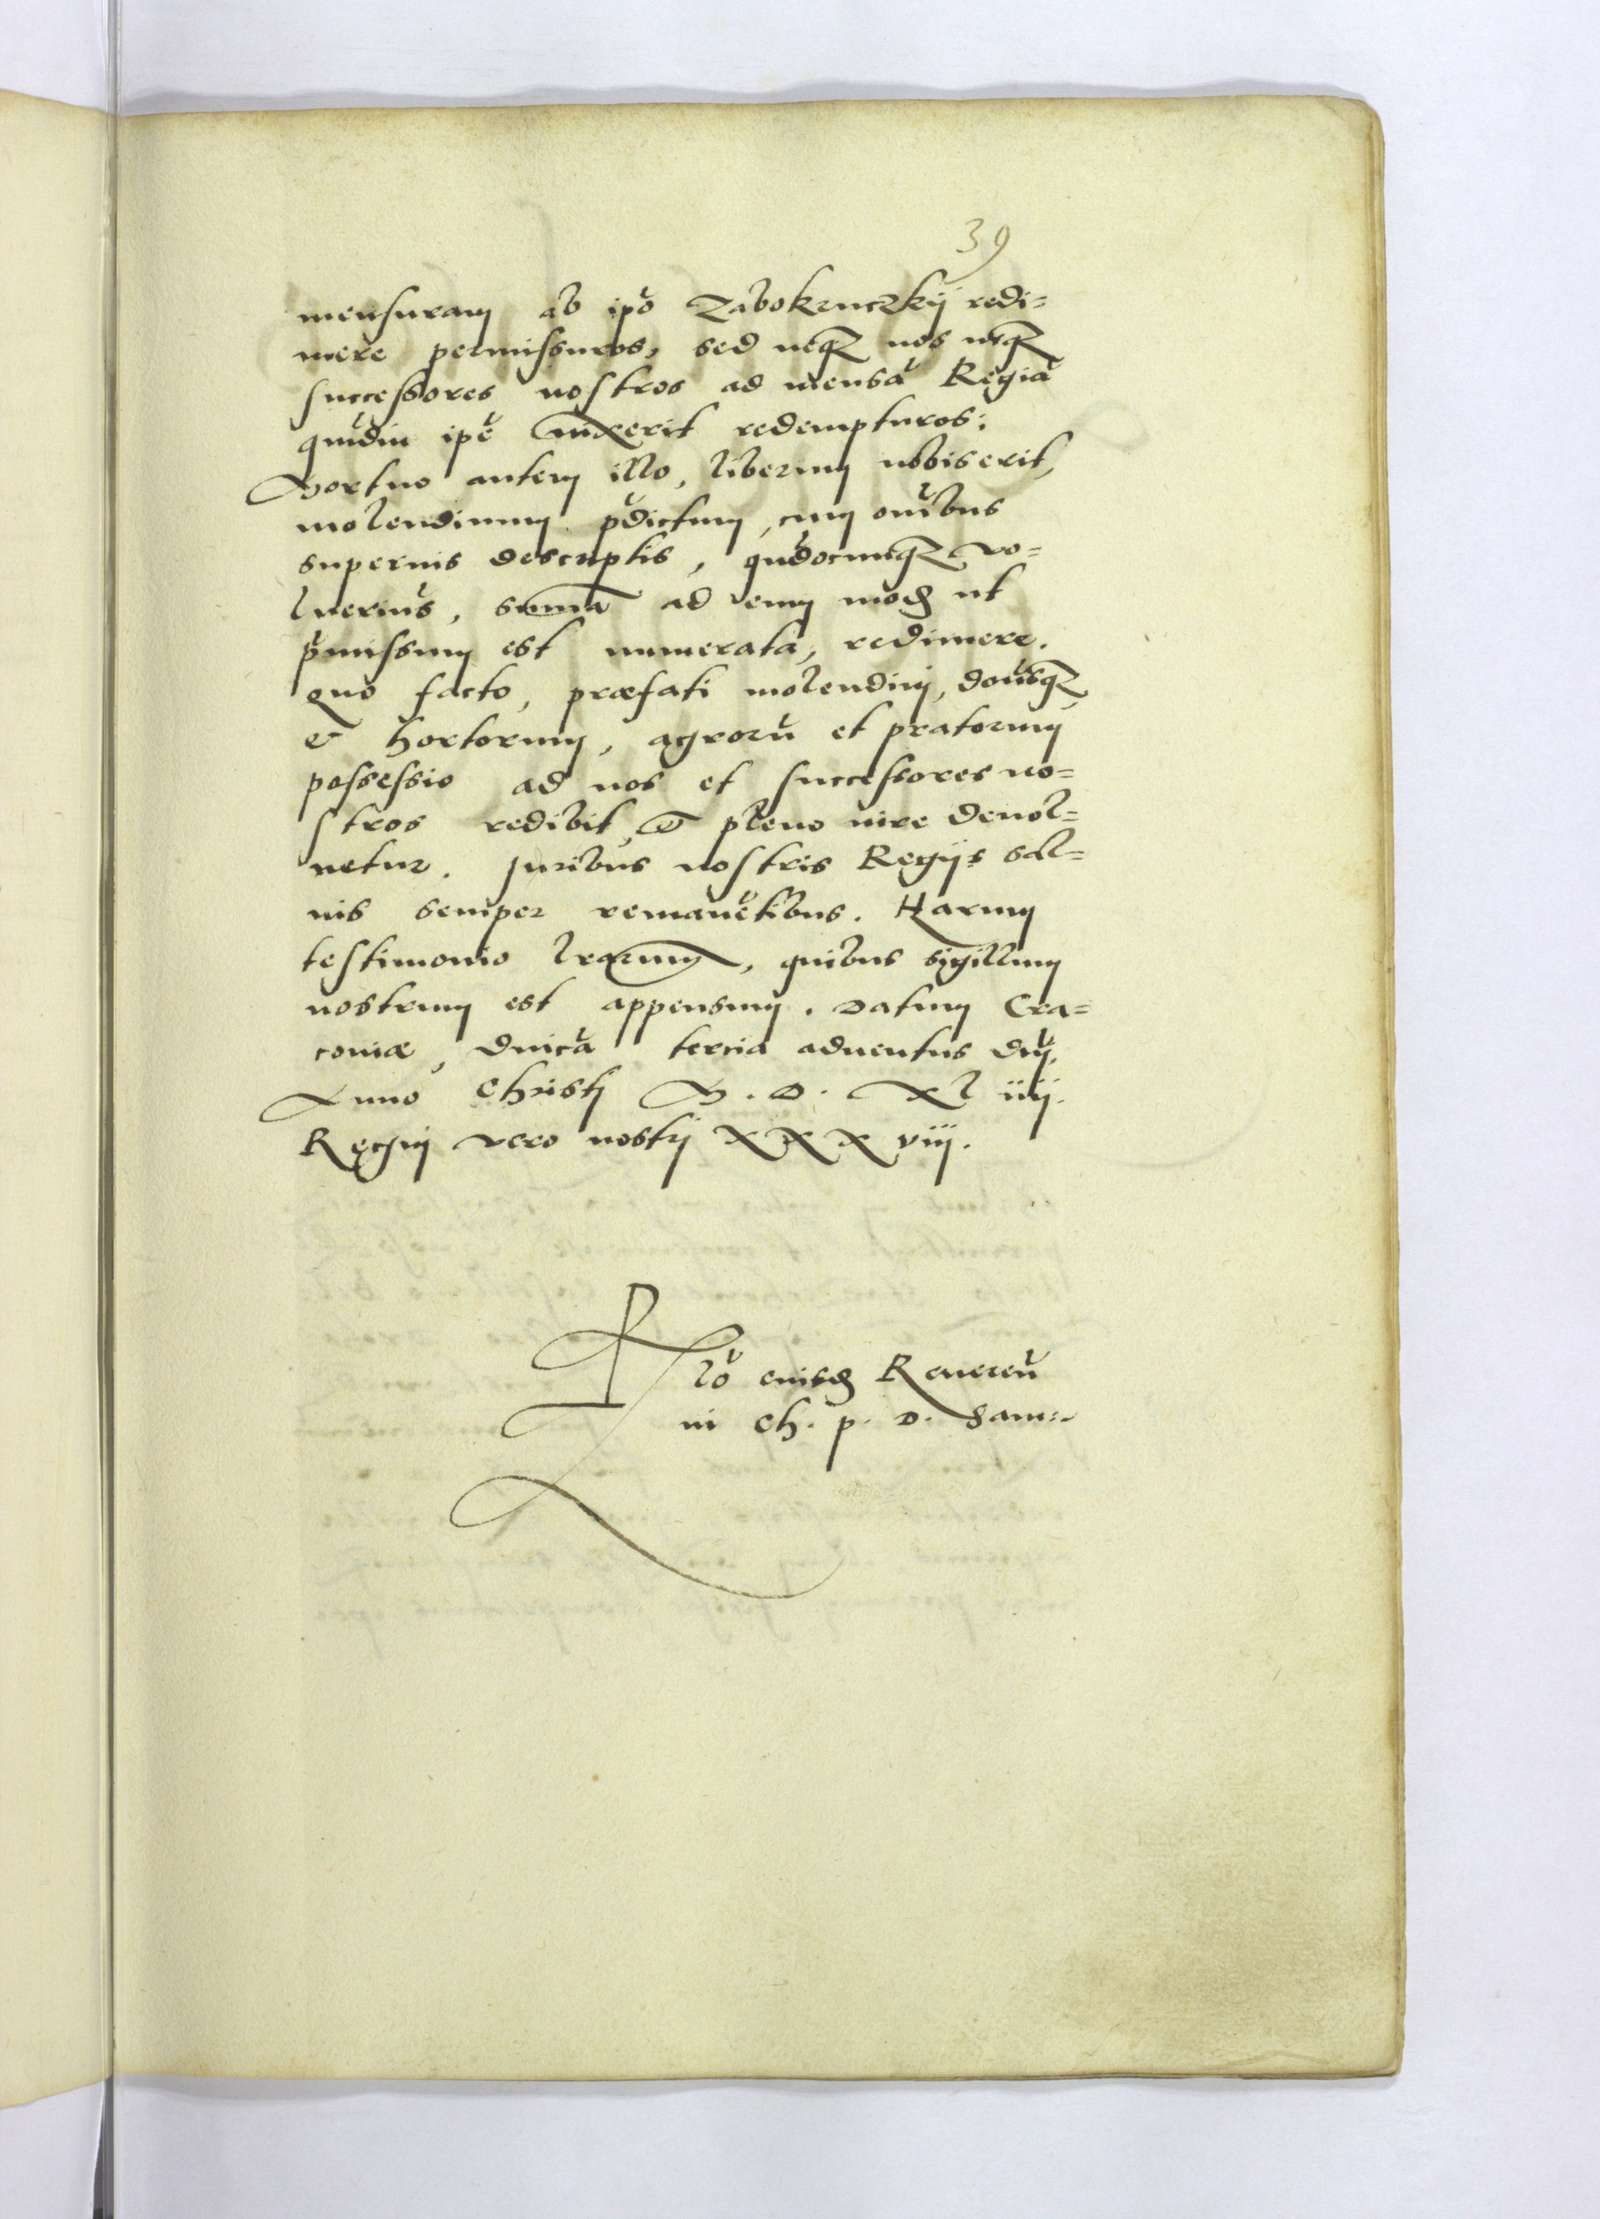 39
mensuram ab ipō Zabokruczkij redi=
mere permissuros, sed neqꝫ nos neqꝫ
successores nostros ad mensā Regiā
quādiu ipē vixerit redempturos:
Mortuo autem illo, liberum nobis erit,
molendinum p̄dictum, cum om̄ibus
supernis descriptis, quādocunqꝫ vo=
luerim̄s, summa ad eum modū ut
p̄missum est numerata, redimere.
quo facto, præfati molendini, domusqꝫ
& hortorum, agrorū et pratorum
possessio ad nos et successores no=
stros redibit, & pleno iure deuol=
uetur. Juribus nostris Regijs sal=
uis semper remanētibus. Harum
testimonio lrarum, quibus sigillum
nostrum est appensum. Datum Cra=
couiæ, dnica tercia aduentus dnj,
Anno Christj M. D. XL iiij.
Regnj vero nostrj XXX viij.
Rlō eiusdē Reueren̄
in Ch. p. D. Sam: